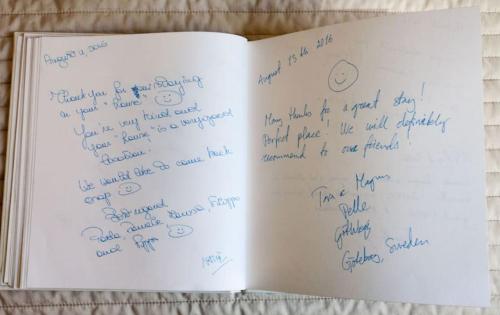 August 4, 2016
Thank you for your staying
in your "house"
You're very kind and
your "house" is a very good
location!
We would like to come back
Best regard
Paola, Daniele, Filippo
and Pippo
August 13th 2016
Many thanks for a great stay!
Perfect place! We will definitely
recommend to our friends!
Pelle
Göteborg, Sweden